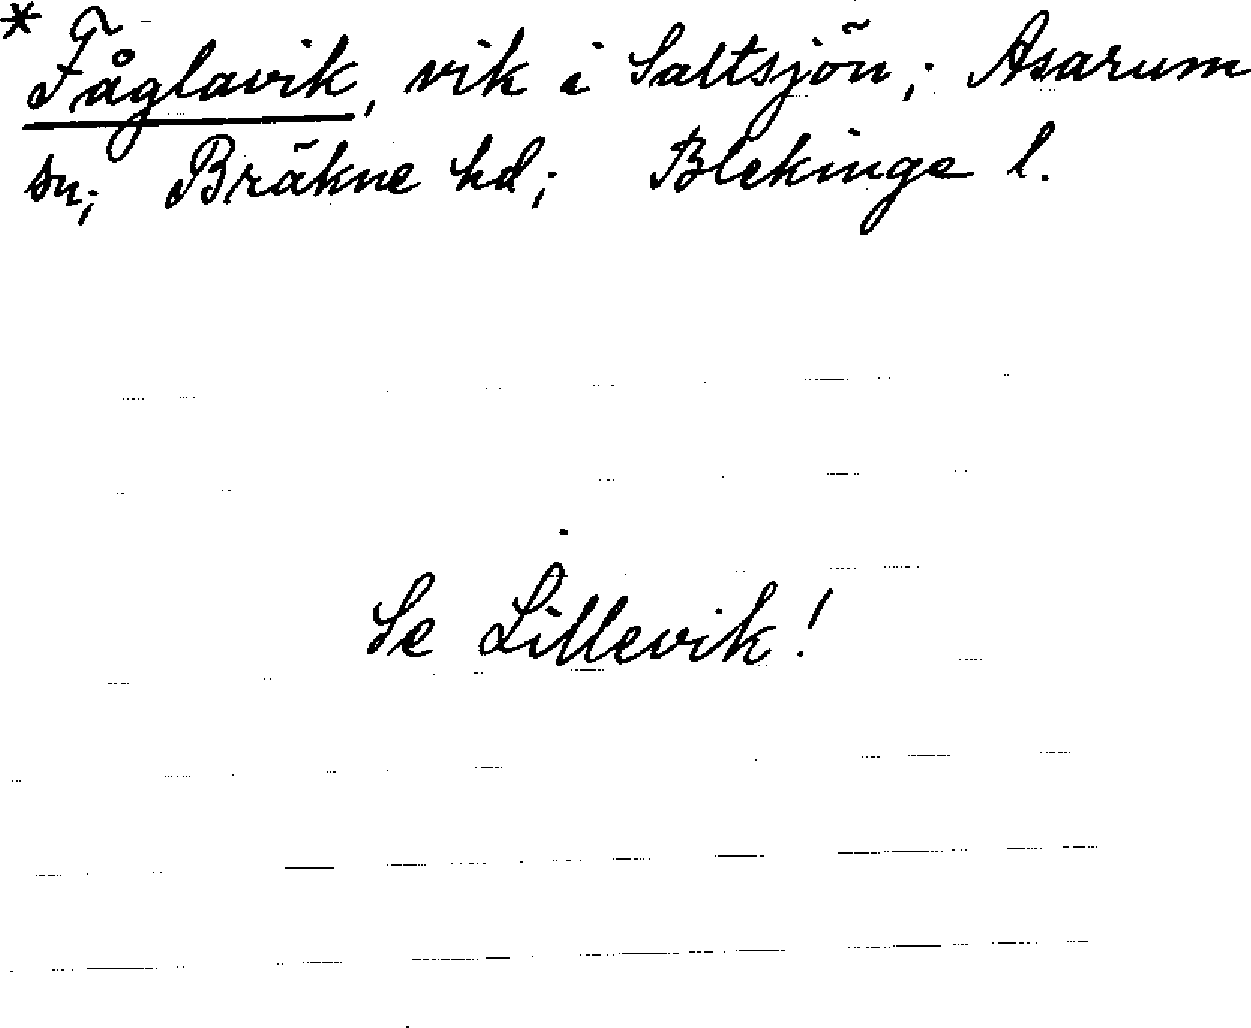 * Fåglavik, vik i Saltsjön; Asarum
sn; Bräkne hd; Blekinge l.
Se Lillevik!